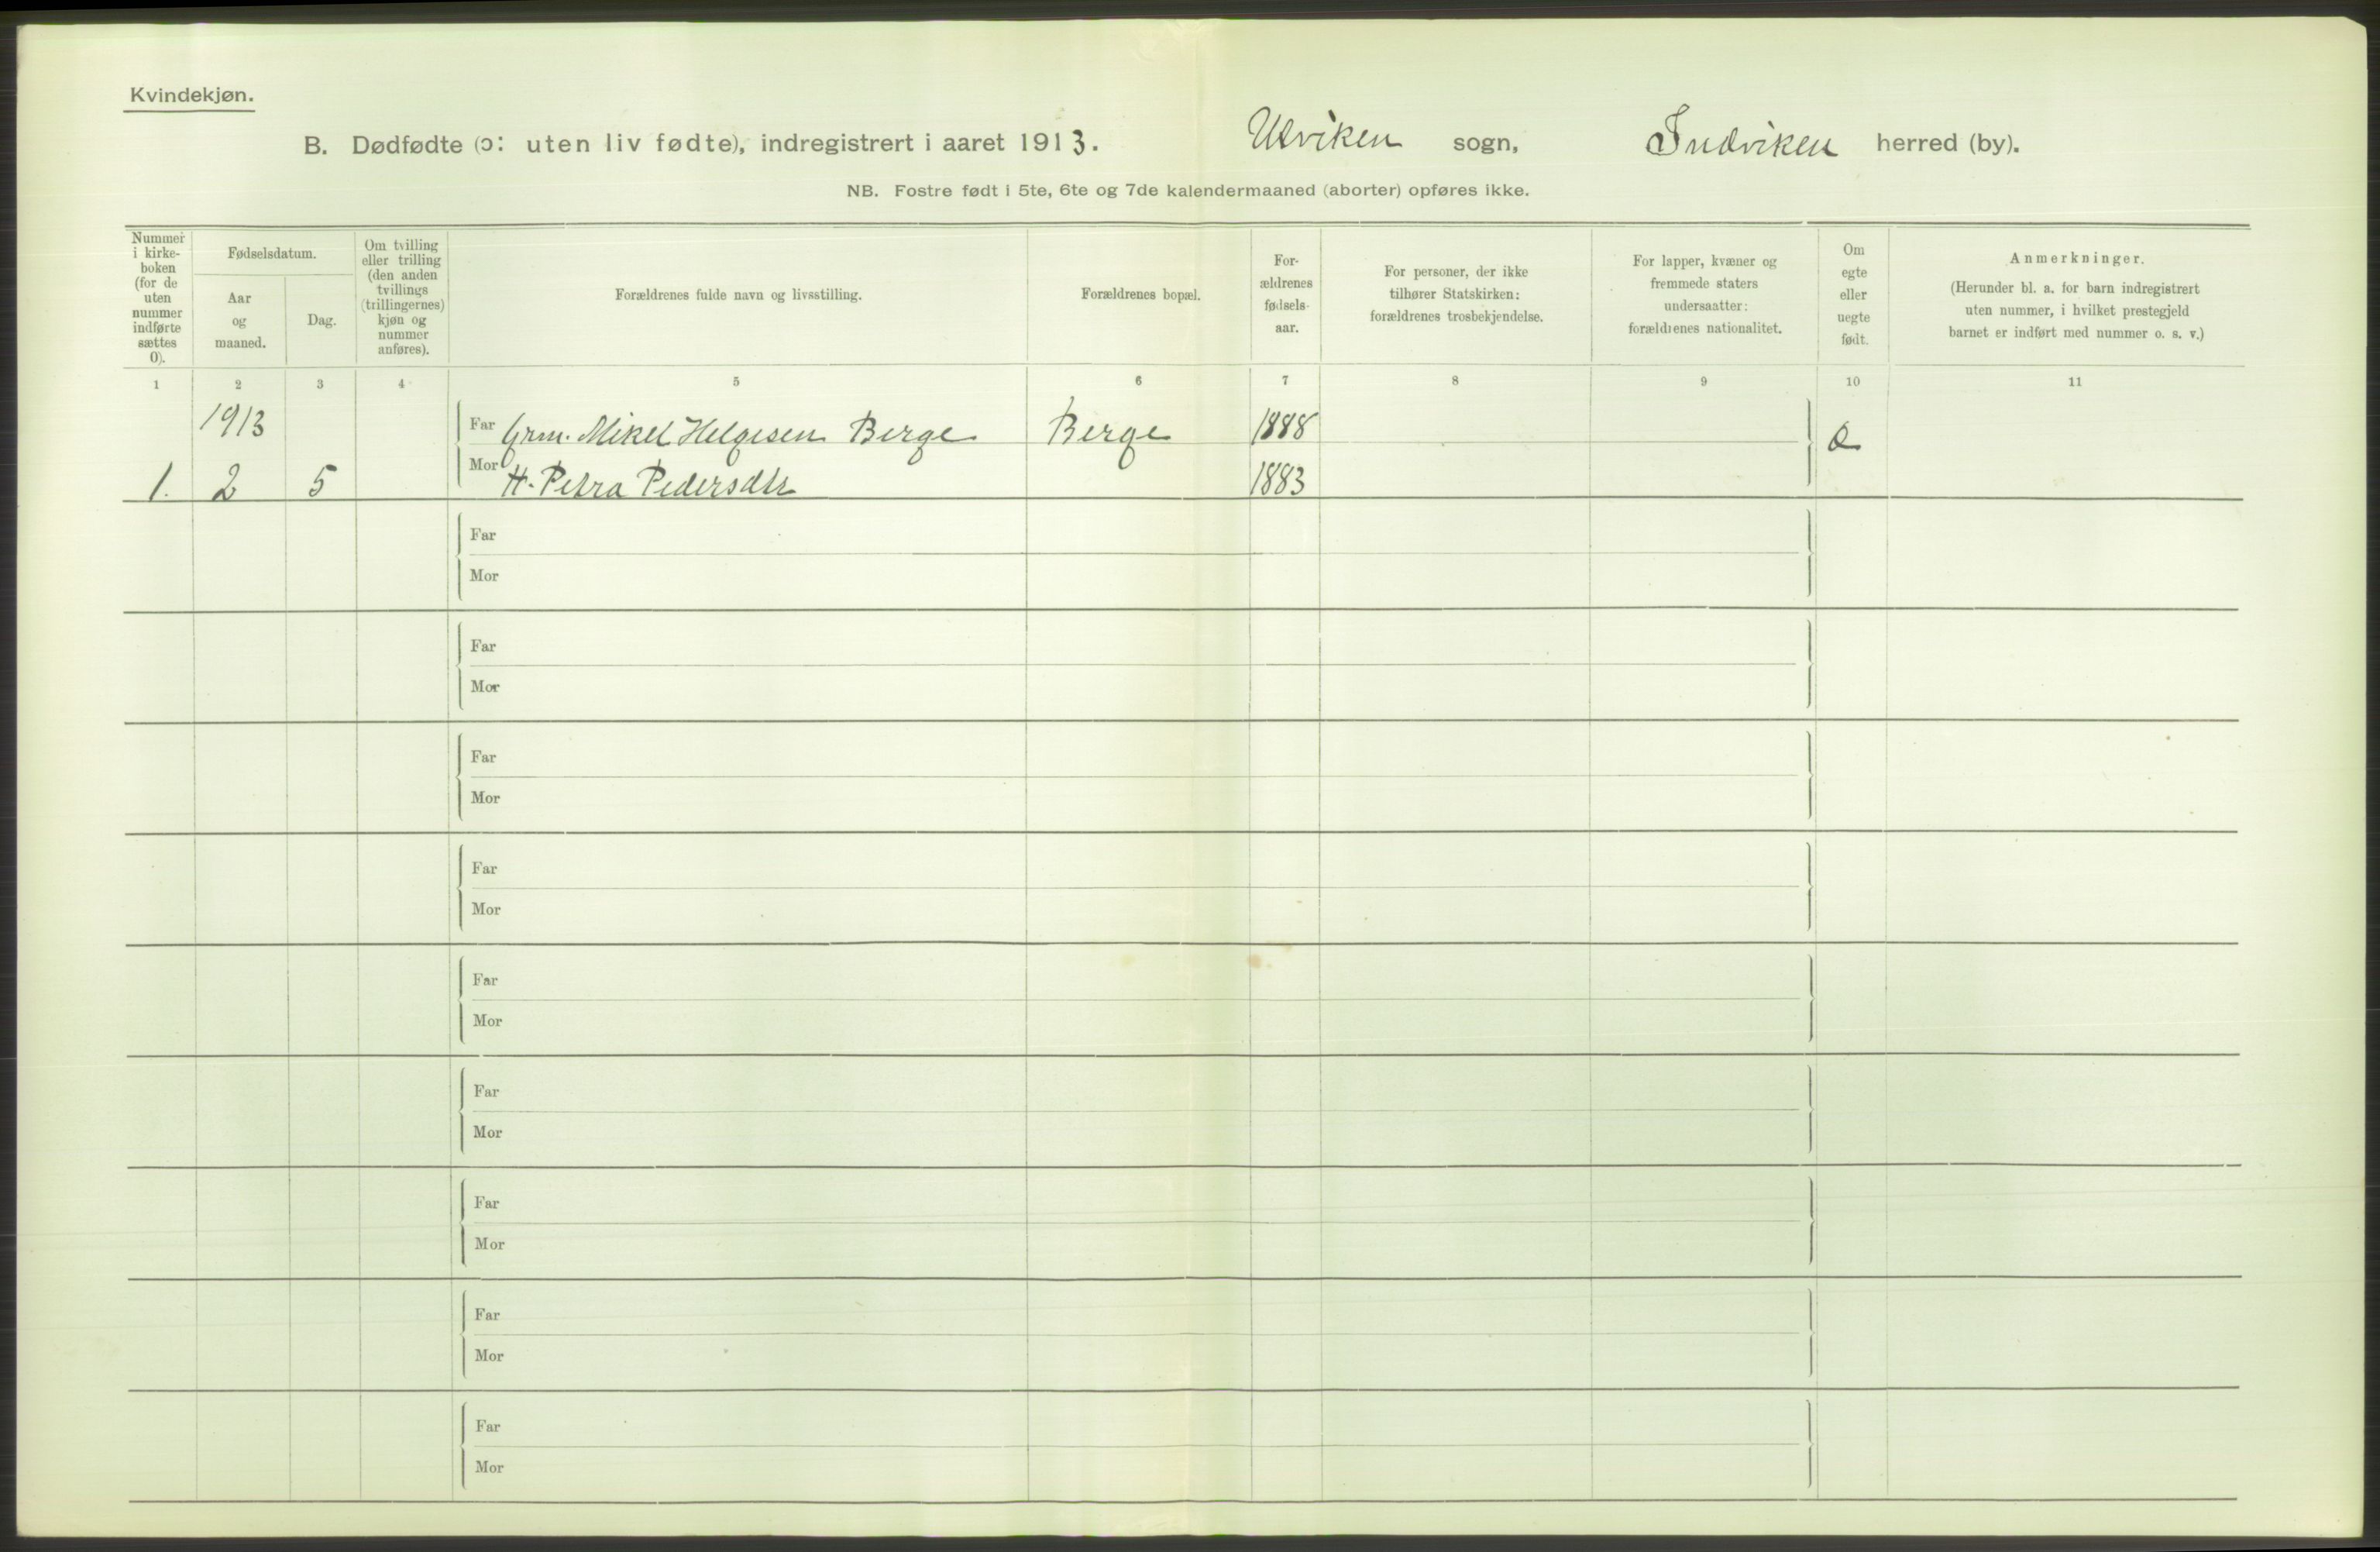 Kvindekjøn.
B. Dødfødte (ɔ: uten liv fødte), indregistrert i aaret 1913. Utviken sogn, Indviken herred (by).
NB. Fostre født i 5te, 6te og 7de kalendermaaned (aborter) opføres ikke.
Nummer
i kirke-
boken
(for de
uten
nummer
indførte
sættes
0).
Fødselsdatum.
Aar
og
maaned.
Dag.
Om tvilling
eller trilling
(den anden
tvillings
(trillingernes)
kjøn og
nummer
anføres).
Forældrenes fulde navn og livsstilling.
Forældrenes bopæl.
For-
ældrenes
fødsels-
aar.
For personer, der ikke
tilhører Statskirken:
forældrenes trosbekjendelse.
For lapper, kvæner og
fremmede staters
undersaatter:
forældrenes nationalitet.
Om
egte
eller
uegte
født.
Anmerkninger.
(Herunder bl. a. for barn indregistrert
uten nummer, i hvilket prestegjeld
barnet er indført med nummer o. s. v.)
1 2 3 4 5 6 7 8 9 10 11
1913 Far Grm. Mikel Helgesen Berge Berge 1888
1. 2 5 Mor H. Petra Pedersdtr 1883
Far
Mor
Far
Mor
Far
Mor
Far
Mor
Far
Mor
Far
Mor
Far
Mor
Far
Mor
Far
Mor